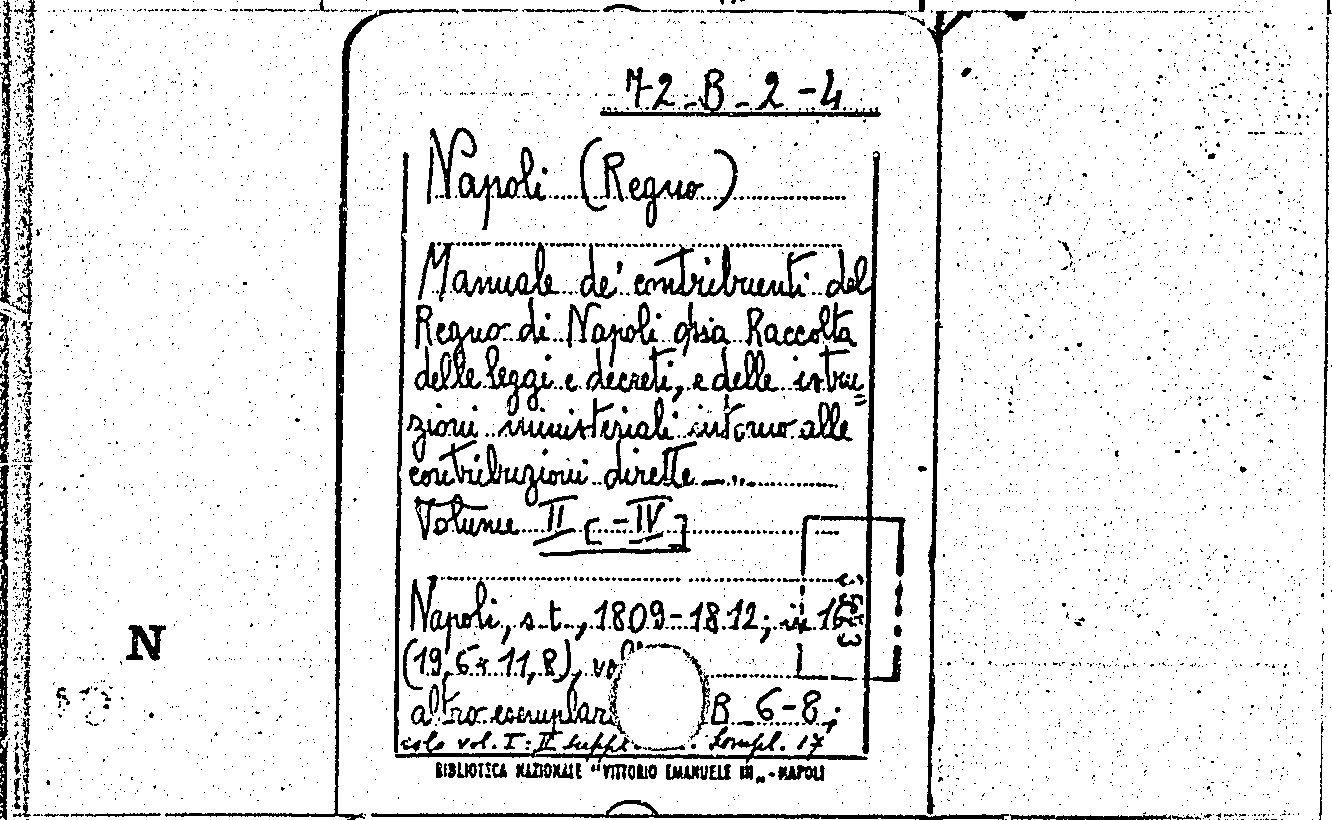 72-B-2-4
Napoli (Regno)
Manuale de' contribuenti del
Regno di Napoli ossia Raccolta
delle leggi e decreti, e delle istru=
zioni ministeriali intorno alle
contribuzioni dirette ....
Volume II [-IV]
Napoli, s.t., 1809-1812; in 16°
(19,6x11,8), vol
altro esemplare B 6-8;
solo vol. I: II suppl. 17
BIBLIOTECA NAZIONALE "VITTORIO EMANUELE III" - NAPOLI
N